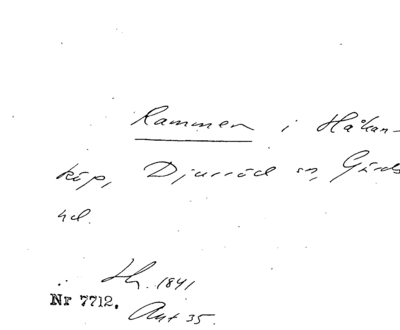 Rammen i Håkan-
köp, Djurröd sn, Gärds
hd.
Hr. 1841
Nr 7712. Ant 35.